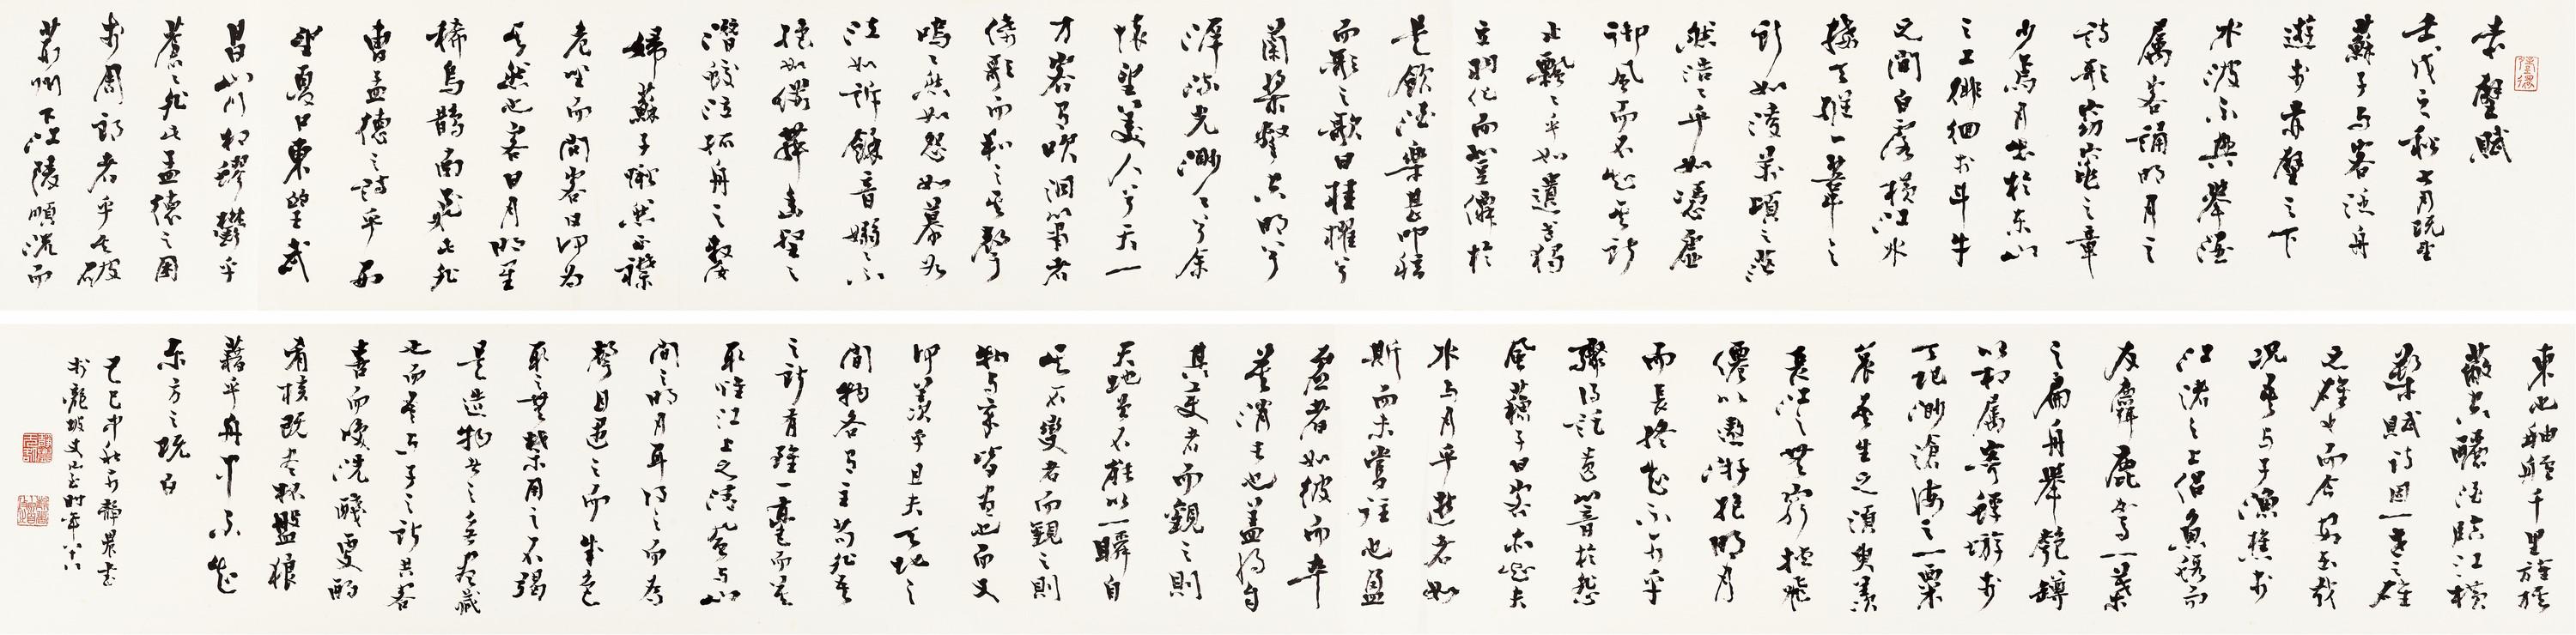 赤壁賦
壬戌之秋七月既望
蘇子與客泛舟
遊於赤壁之下
水波不興舉酒
屬客誦明月之
詩歌窈窕之章
少焉月出於東山
之上徘徊於斗牛
之間白露橫江水
接天縱一葦之
所如凌萬頃之茫
然浩浩乎如憑虛
御風而不知其所
止飄飄乎如遺世獨
立羽化而登僊於
是飲酒樂甚叩舷
而歌之歌曰桂櫂兮
蘭槳擊空明兮
泝流光渺渺兮余
懷望美人兮天一
方客有吹洞簫者
倚歌而和之其聲
嗚嗚然如怨如慕如
泣如訴餘音嫋嫋不
絕如縷舞幽壑之
潛蛟泣孤舟之嫠
婦蘇子愀然正襟
危坐而問客曰何為
其然也客曰月明星
稀烏鵲南飛此非
曹孟德之詩乎西
望夏口東望武
昌山川相繆鬱乎
蒼蒼非此孟德之困
於周郎者乎方其破
荊州下江陵順流而
東也舳艫千里旌旗
蔽空釃酒臨江橫
槊賦詩固一世之雄
之雄也而今安在哉
況吾與子漁樵於
江渚之上侶魚蝦而
友麋鹿駕一葉
之扁舟舉匏樽
以相屬寄蜉蝣於
天地渺滄海之一粟
哀吾生之須臾羨
長江之無窮挾飛
僊以遨遊抱明月
而長終知不可乎
驟得託遺響於悲
風蘇子曰客亦知夫
水與月乎逝者如
斯而未嘗往也盈
虛者如彼而卒
莫消長也蓋將自
其變者而觀之則
天地曾不能以一瞬自
其不變者而觀之則
物與我皆無盡也而又
何羨乎且夫天地之
間物各有主苟非吾
之所有雖一毫而莫
取惟江上之清風與山
間之明月耳得之而為
聲目遇之而成色
取之無禁用之不竭
是造物者之無盡藏
也而吾與子之所共客
喜而笑洗盞更酌
肴核既盡杯盤狼
藉乎舟中不知
東方之既白
己巳中秋前靜農書
於龍坡丈室時年八十八